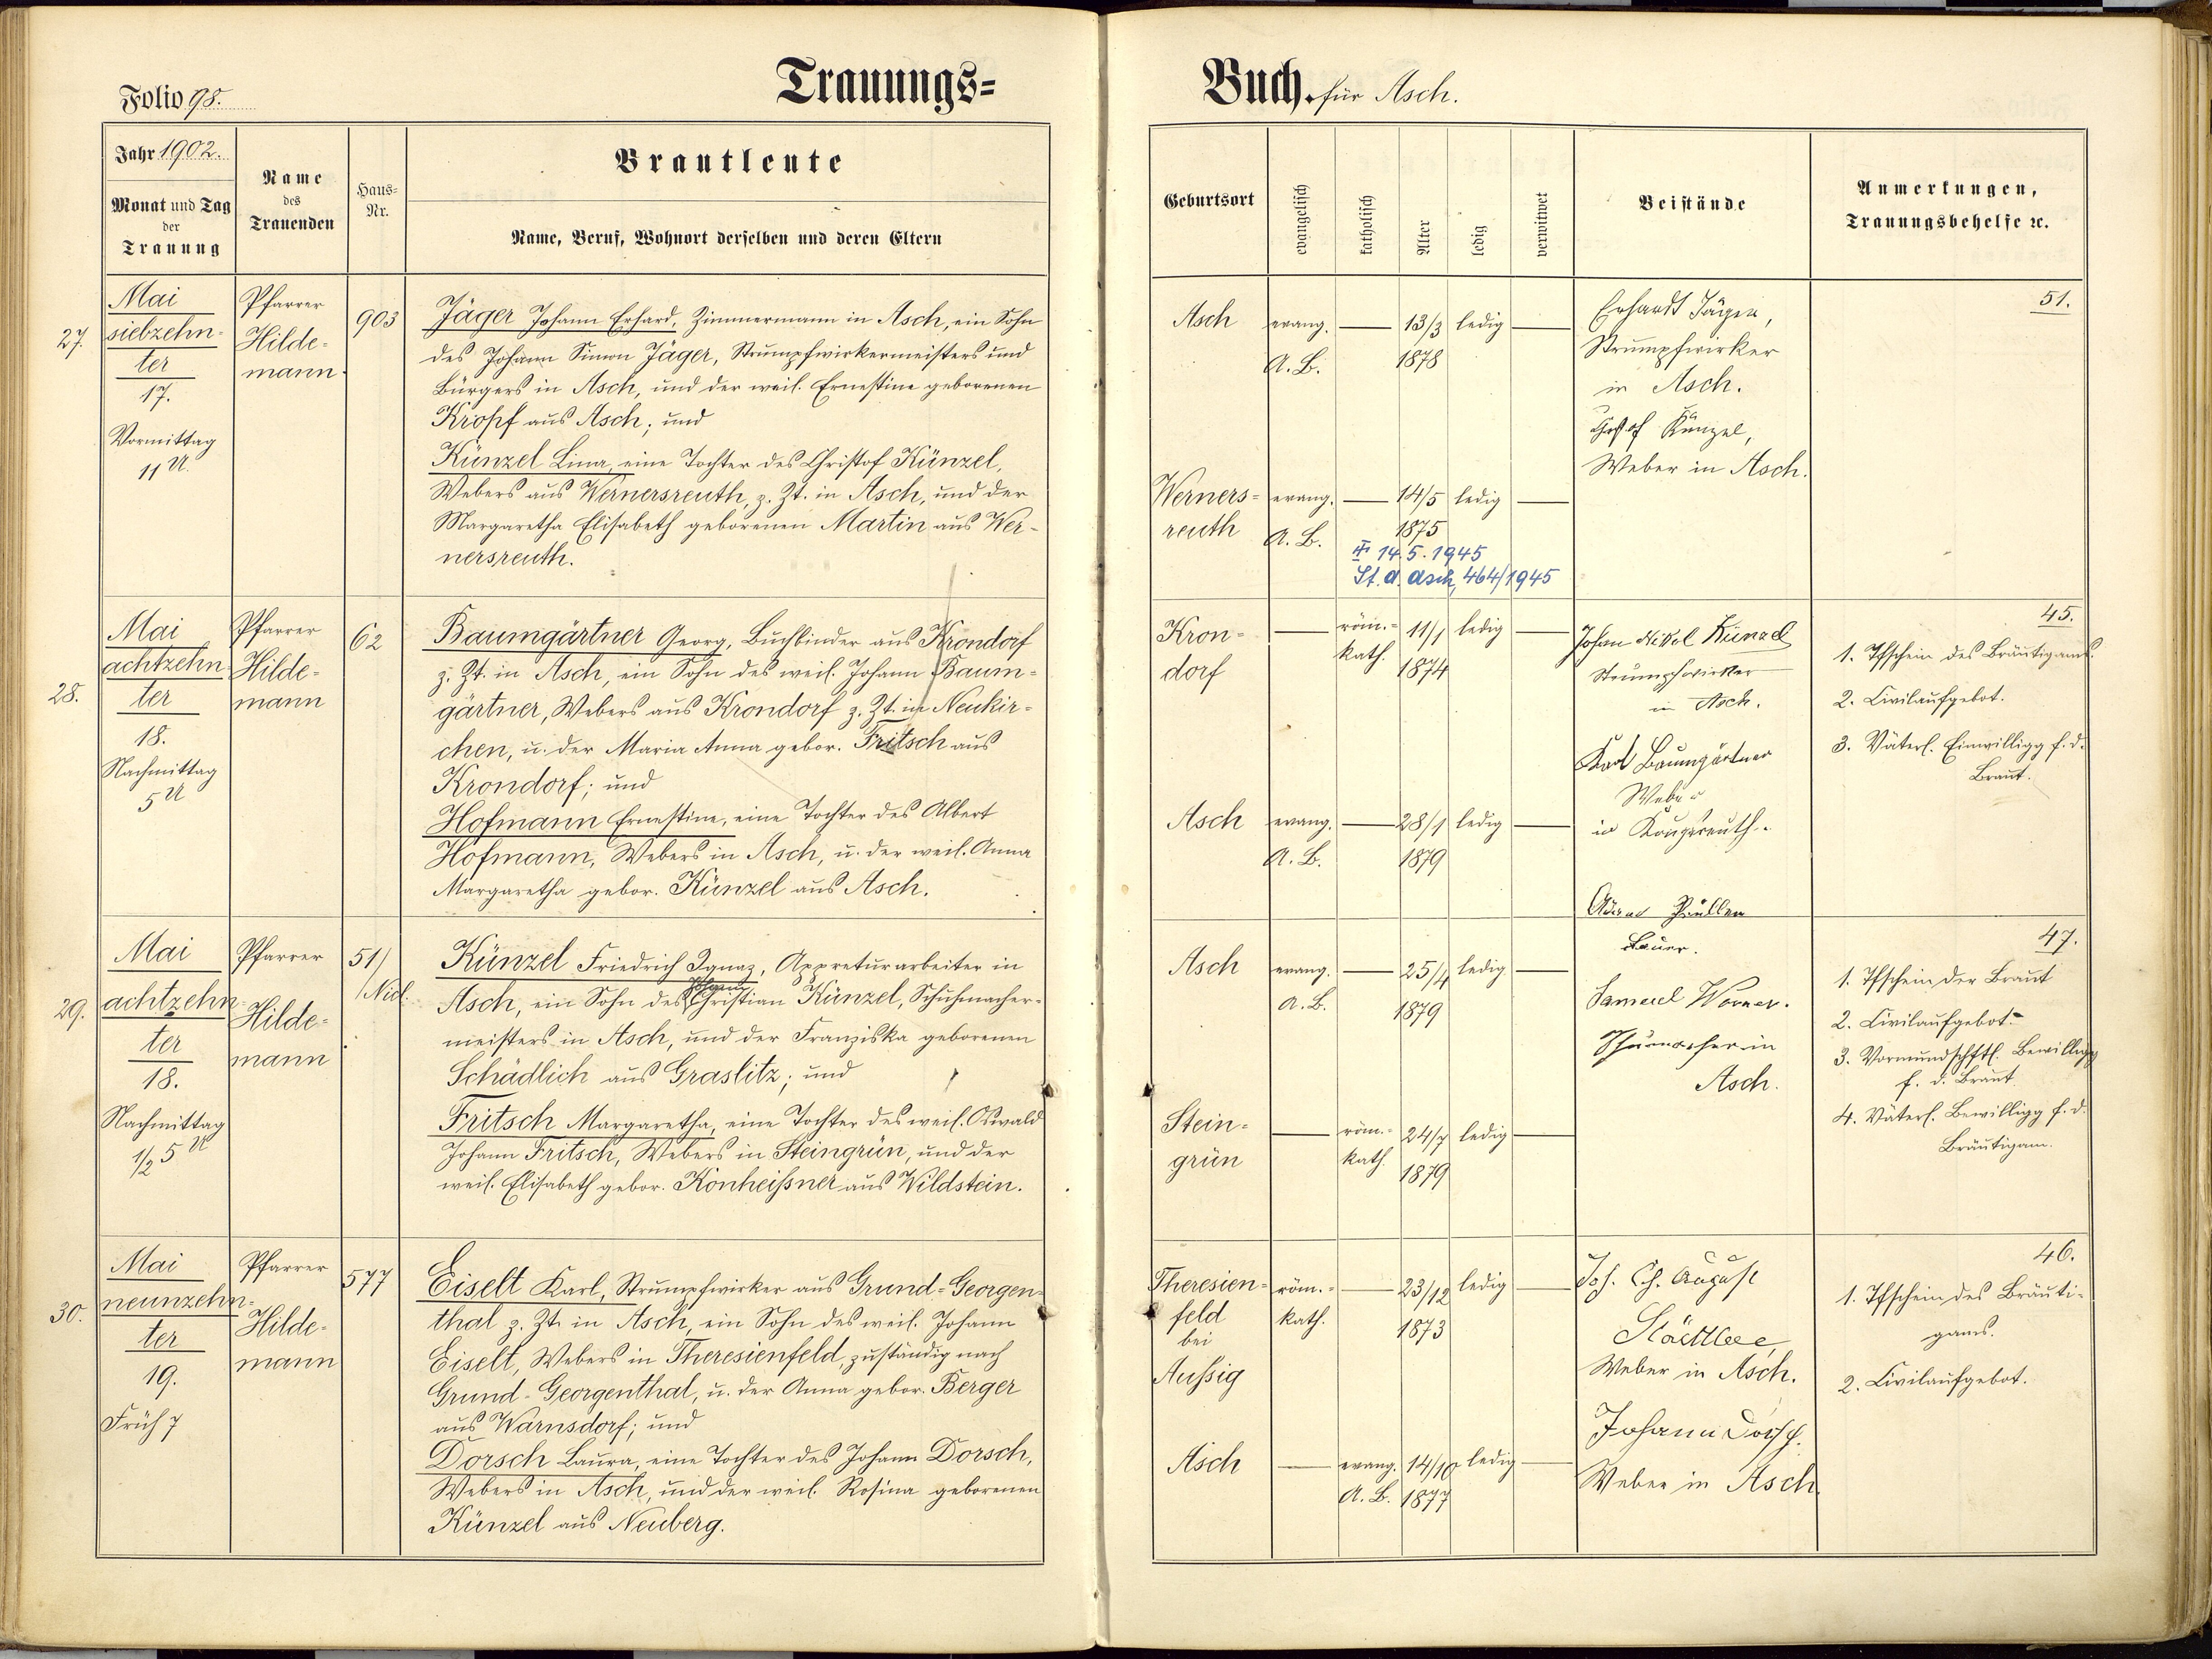 Folio 98.
Trauungs=
Jahr 1902.
Monat und Tag
der
Trauung
Name
des
Trauenden
Haus-
Nr.
Brautleute
Name, Beruf, Wohnort derselben und deren Eltern
27.
Mai
siebzehn-
ter
17.
Vormittag
11 U.
Pfarrer
Hilde-
mann
903
Jäger Johann Erhard, Zimmermann in Asch, ein Sohn
des Johann Simon Jäger, Strumpfwirkermeisters und
Bürgers in Asch, und der weil. Ernestine geborenen
Kropf aus Asch; und
Künzel Lina, eine Tochter des Christof Künzel,
Webers aus Wernersreuth, z. Zt. in Asch, und der
Margaretha Elisabeth geborenen Martin aus Wer-
nersreuth.
28.
Mai
achtzehn-
ter
18.
Nachmittag
5 U
Pfarrer
Hilde-
mann
62
Baumgärtner Georg, Buchbinder aus Krondorf
z. Zt. in Asch, ein Sohn des weil. Johann Baum-
gärtner, Webers aus Krondorf z. Zt. in Neukir-
chen, u. der Maria Anna gebor. Fritsch aus
Krondorf; und
Hofmann Ernestine, eine Tochter des Albert
Hofmann, Webers in Asch, u. der weil. Anna
Margaretha gebor. Künzel aus Asch.
29.
Mai
achtzehn-
ter
18.
Nachmittag
1/2 5 U
Pfarrer
Hilde-
mann
51/
/Nied.
Künzel Friedrich Ignaz, Appreturarbeiter in
Johann
Asch, ein Sohn des Christian Künzel, Schuhmacher-
meisters in Asch, und der Franziska geborenen
Schädlich aus Graslitz; und
Fritsch Margaretha, eine Tochter des weil. Oswald
Johann Fritsch, Webers in Steingrün, und der
weil. Elisabeth gebor. Konheißner aus Wildstein.
30.
Mai
neunzehn-
ter
19.
Früh 7
Pfarrer
Hilde-
mann
577
Eiselt Karl, Strumpfwirker aus Grund-Georgen-
thal z. Zt. in Asch, ein Sohn des weil. Johann
Eiselt, Webers in Theresienfeld, zuständig nach
Grund-Georgenthal, u. der Anna gebor. Berger
aus Warnsdorf; und
Dorsch Laura, eine Tochter des Johann Dorsch,
Webers in Asch, und der weil. Rosina geborenen
Künzel aus Neuberg.
Buch. für Asch.
Geburtsort
evangelisch
katholisch
Alter
ledig
verwitwet
Beistände
Anmerkungen,
Trauungsbehelfe ꝛc.
Asch
evang.
A. B.
13/3
1878
ledig
Erhardt Jäger,
Strumpfwirker
in Asch.
Künzel,
Weber in Asch.
51.
Werners-
reuth
evang.
A. B.
14/5
1875
ledig
14.5.1945
St. A. Asch, 464/1945
Kron-
dorf
röm.-
kath.
11/1
1874
ledig
Johan Nikol Künzel
Strumpfwirker
in Asch.
Karl Baumgärtner
Weber
in
45.
1. Tfschein des Bräutigams.
2. Civilaufgebot.
3. Väterl. Einwilligg f. d.
Braut.
Asch
evang.
A. B.
28/1
1879
ledig
Asch
evang.
A. B.
25/4
1879
ledig
Samuel Worner.
in
Asch.
47.
1. Tfschein der Braut
2. Civilaufgebot.
3. Vormundschftl. Bewilligg
f. d. Braut
4. Väterl. Bewilligg f. d.
Bräutigam.
Stein-
grün
röm.-
kath.
24/7
1879
ledig
Theresien-
feld
bei
Aussig
röm.-
kath.
23/12
1873
ledig
Joh. Ch. August
Weber in Asch.
46.
1. Tfschein des Bräuti-
gams.
2. Civilaufgebot.
Asch
evang.
A. B.
14/10
1877
ledig
Johann Dorsch.
Weber in Asch